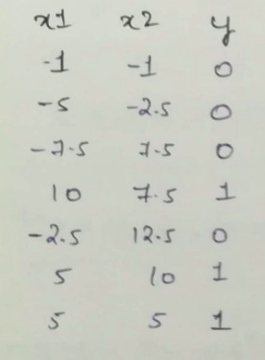 x1 x2 y
-1 -1 0
-5 -2.5 0
-7.5 7.5 0
10 7.5 1
-2.5 12.5 0
5 10 1
5 5 1